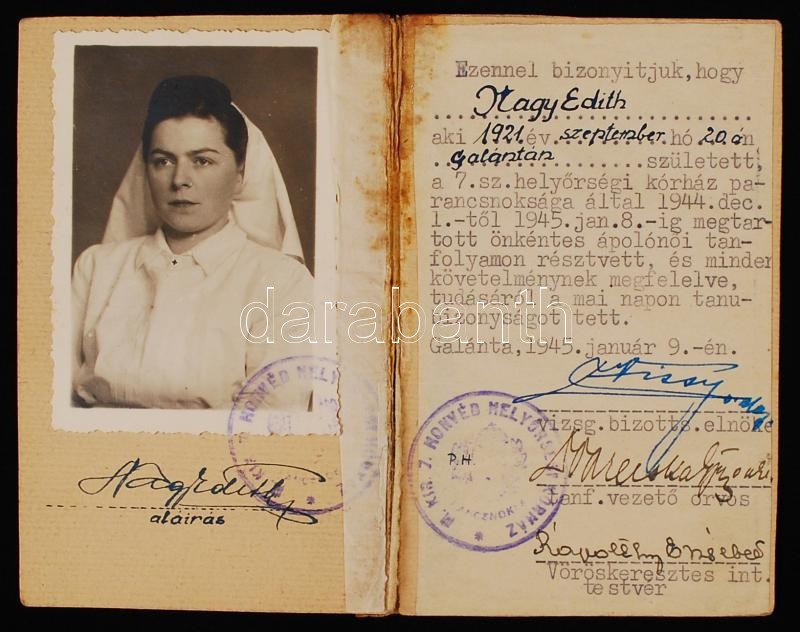 Nagy Edith
aláírás
Ezennel bizonyitjuk, hogy
Nagy Edith
aki 1921 év szeptember hó 20.án
Galántán született,
a 7.sz.helyőrségi kórház pa-
rancsnoksága által 1944.dec.
1.-től 1945.jan.8.-ig megtar-
tott önkéntes ápolónői tan-
folyamon résztvett, és minden
követelménynek megfelelve,
tudásáról a mai napon tanu-
bizonyságot tett.
Galánta,1945.január 9.-én.
Vizsg.bizotts.elnöke
P.H.
M. KIR. 7. HONVÉD HELYŐRSÉGI KÓRHÁZ
tanf.vezető orvos
Erzsébet
Vöröskeresztes int.
testvér
darabanth